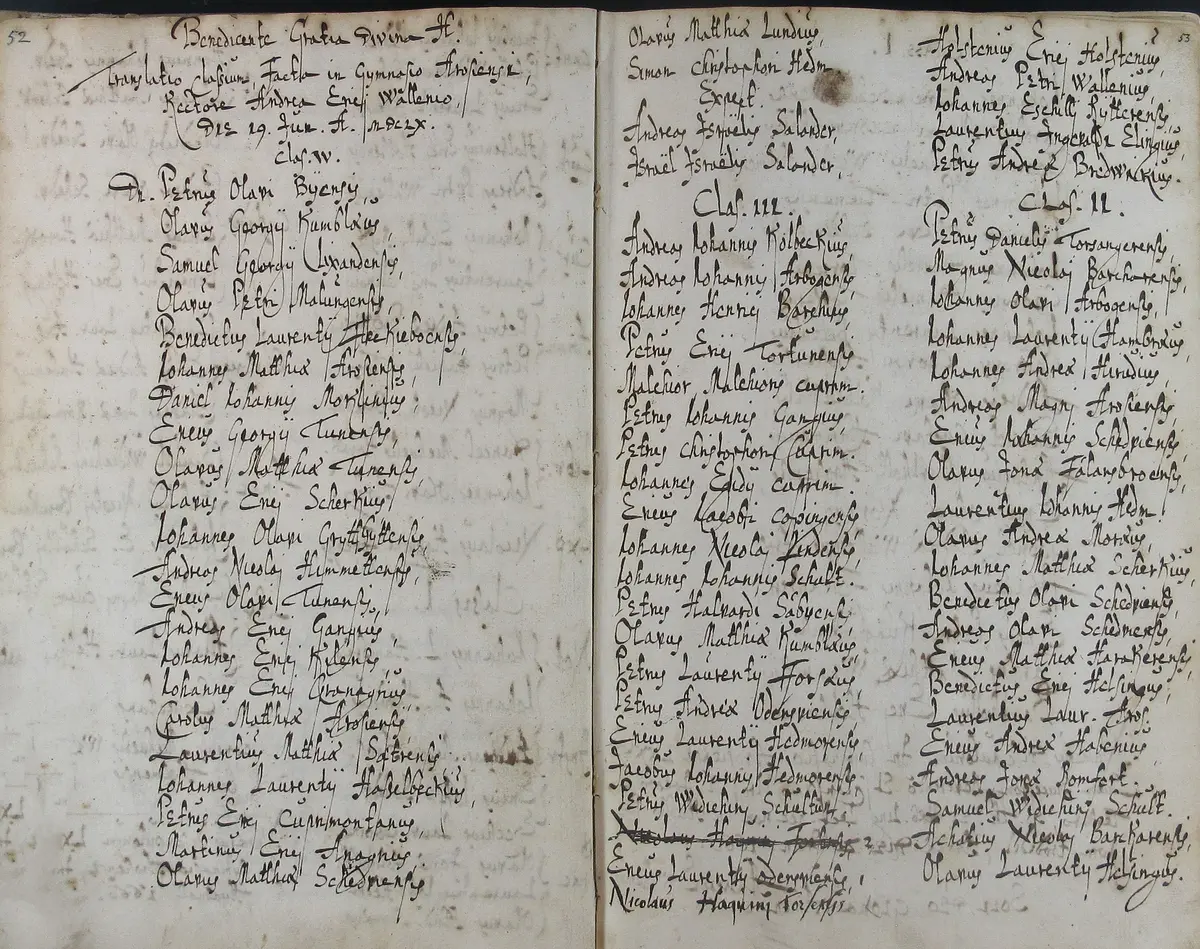 52
Benedicente Gratia Divina A.
Translatio Classium Facta in Gymnasio Arosiensi,
Rectore Andrea Erici Wallenio,
Die 19. Jun. A. MDCLX.
Clas. IV.
Dn. Petrus Olavi Byensis,
Olavus Georgij Kumblæus,
Samuel Georgij Lixandensis,
Olavus Petri Malungensis,
Benedictus Laurentij
Johannes Matthiæ Arosiensis,
Daniel Johannis Morslinius,
Ericus Georgij Tunensis,
Olavus Matthiæ Tunensis,
Olavus Erici Scherkius,
Johannes Olavi Gryttgyttensis,
Andreas Nicolai Himmettensis,
Ericus Olavi Tunensis,
Andreas Erici Ganzius,
Johannes Erici Kilensis,
Johannes Erici
Carolus Matthiæ Arosiensis,
Laurentius Matthiæ Sætrensis,
Johannes Laurentij Hasselbeckius,
Petrus Erici Cuprimontanus,
Martinus Erici Anagrius.
Olavus Matthiæ Schedviensis
Olavus Matthiæ Lundius,
Simon Christophori Hedm
Expect.
Andreas Israëlis Salander,
Israël Israëlis Salander,
Clas. III.
Andreas Johannis Kolbeckius,
Andreas Johannis Arbogensis,
Johannes Henrici Barchius,
Petrus Erici Tortunensis
Malchior Malchioris cuprim.
Petrus Johannis Ganzius,
Petrus Christophori Cuprim.
Johannes Egidij cuprim.
Ericus Jacobi copingensis,
Johannes Nicolai Lindensis,
Johannes Johannis Schult.
Petrus Halvardi Säbyensis
Olavus Matthiæ Kumblæus,
Petrus Laurentij Forsæus,
Petrus Andreæ Odensviensis,
Ericus Laurentij Hedmorensis,
Jacobus Johannis Hedmorensis,
Petrus Widichini Schultin
Ericus Laurentij odensviensis,
Nicolaus Haquini Torsensis
53
Holstenius Erici Holstenius,
Andreas Petri Wallenius
Johannes Eschilli Ryttérensis,
Laurentius Ingevaldi Elingius,
Petrus Andreæ Bredwickius.
Clas. II.
Petrus Danielis Torsangerensis,
Magnus Nicolai Barcharensis,
Johannes Olavi Arbogensis,
Johannes Laurentij Hambræus,
Johannes Andreæ Hirudius,
Andreas Magni Arosiensis,
Ericus Johannis Schedviensis,
Olavus Jonæ
Laurentius Johannis Hedm.
Olavus Andreæ Moræus,
Johannes Matthiæ Scherkius,
Benedictus Olavi Schedviensis,
Andreas Olavi Schedviensis,
Ericus Matthiæ Harakerensis,
Benedictus Erici Helsingus,
Laurentius Laur. Aros.
Ericus Andreæ Habenius,
Andreas Jonæ Romfort.
Samuel Widichini Schult.
Achatius Nicolai Barkarensis,
Olavus Laurentij Helsingus.